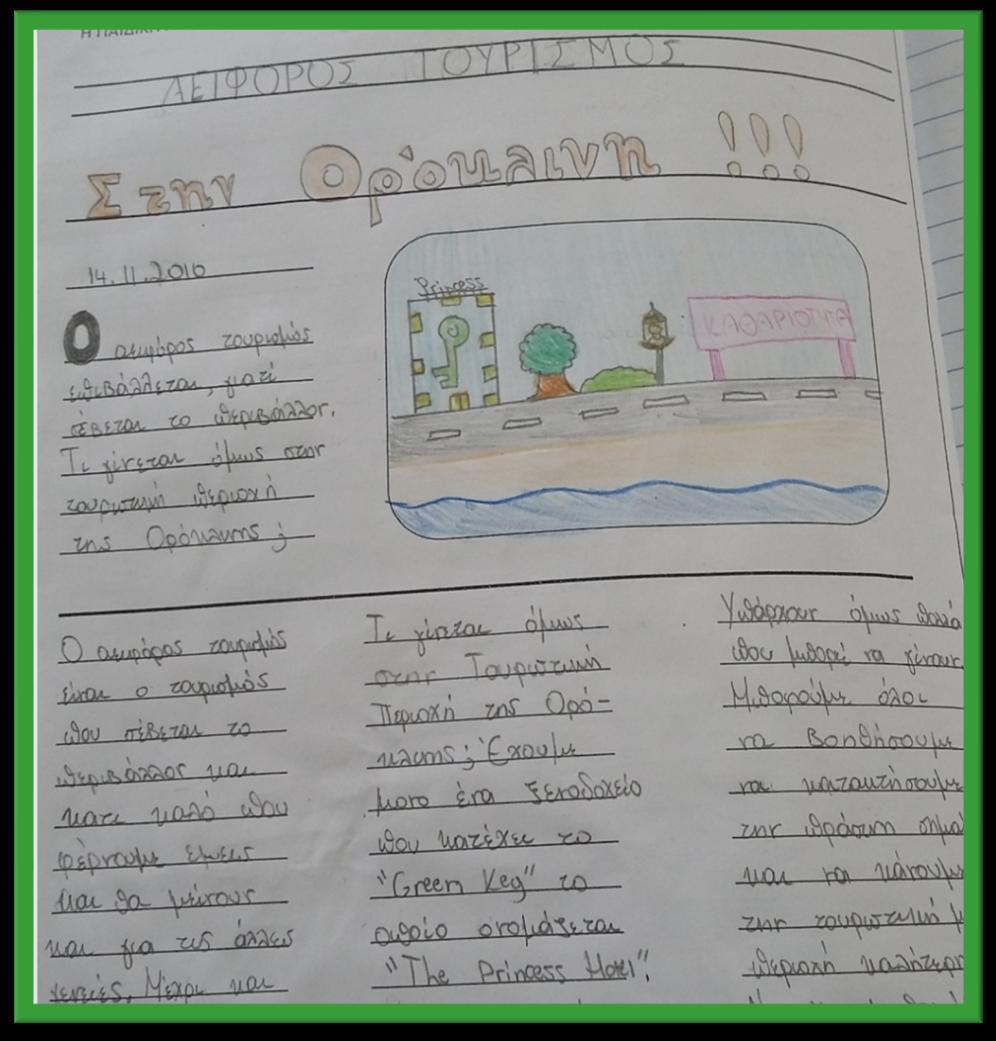 ΑΕΙΦΟΡΟΣ ΤΟΥΡΙΣΜΟΣ
Στην Ορόκλινη !!!
14.11.2016
Ο αειφόρος τουρισμός
επιβάλλεται, γιατί
σέβεται το περιβάλλον.
Τι γίνεται όμως στην
τουριστική περιοχή
της Ορόκλινης;
Princess
ΚΑΘΑΡΙΟΤΗΤΑ
Ο αειφόρος τουρισμός
είναι ο τουρισμός
που σέβεται το
περιβάλλον και
κατι καλό που
φέρνουμε εμείς
και θα μείνουν
και για τις άλλες
γενειές. Μέχρι και
Τι γίνεται όμως
στην Τουριστική
Περιοχή της Ορό-
κλινης; Έχουμε
μονο ένα ξενοδοχείο
που κατέχει το
"Green Key" το
οποίο ονομάζεται
"The Princess Hotel".
Υπάρχουν όμως πολλά
που μπορεί να γίνουν
Μπορούμε όλοι
να βοηθήσουμε
να κατακτήσουμε
την πράσινη σημα
και να κάνουμε
την τουριστική
περιοχή καλήτερη